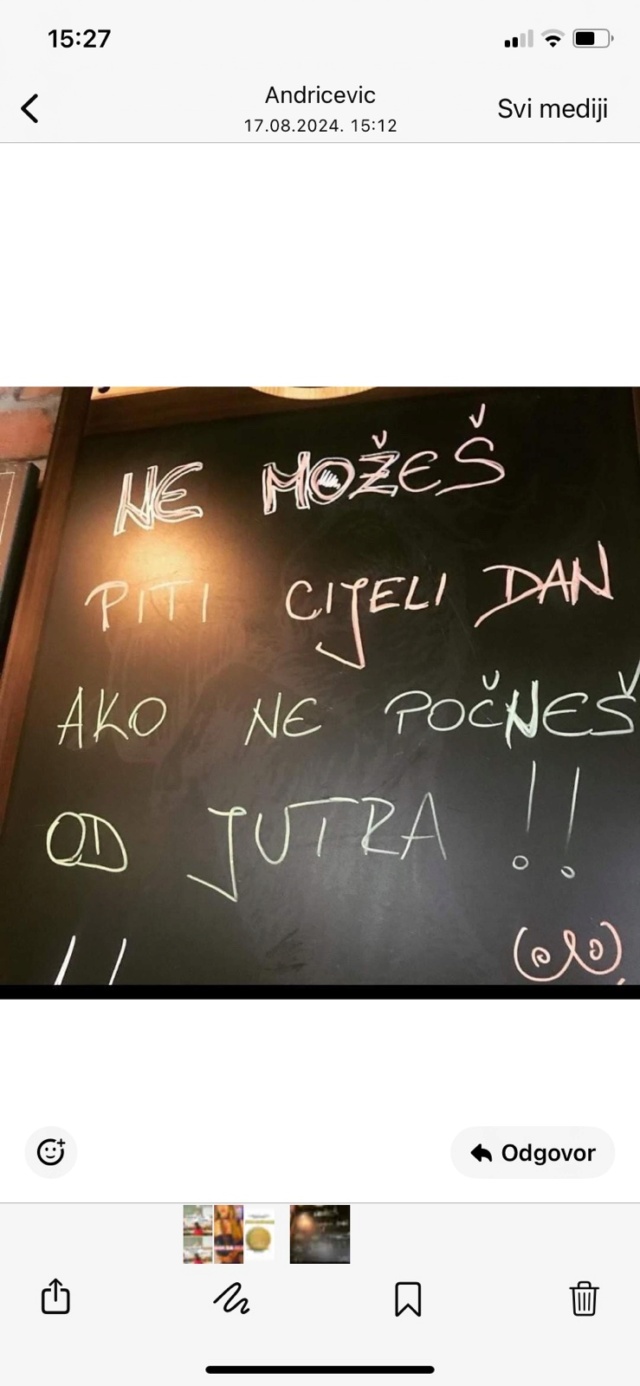 15:27
Andricevic
17.08.2024. 15:12
Svi mediji
NE MOŽEŠ
PITI CIJELI DAN
AKO NE POČNEŠ
OD JUTRA !!
Odgovor